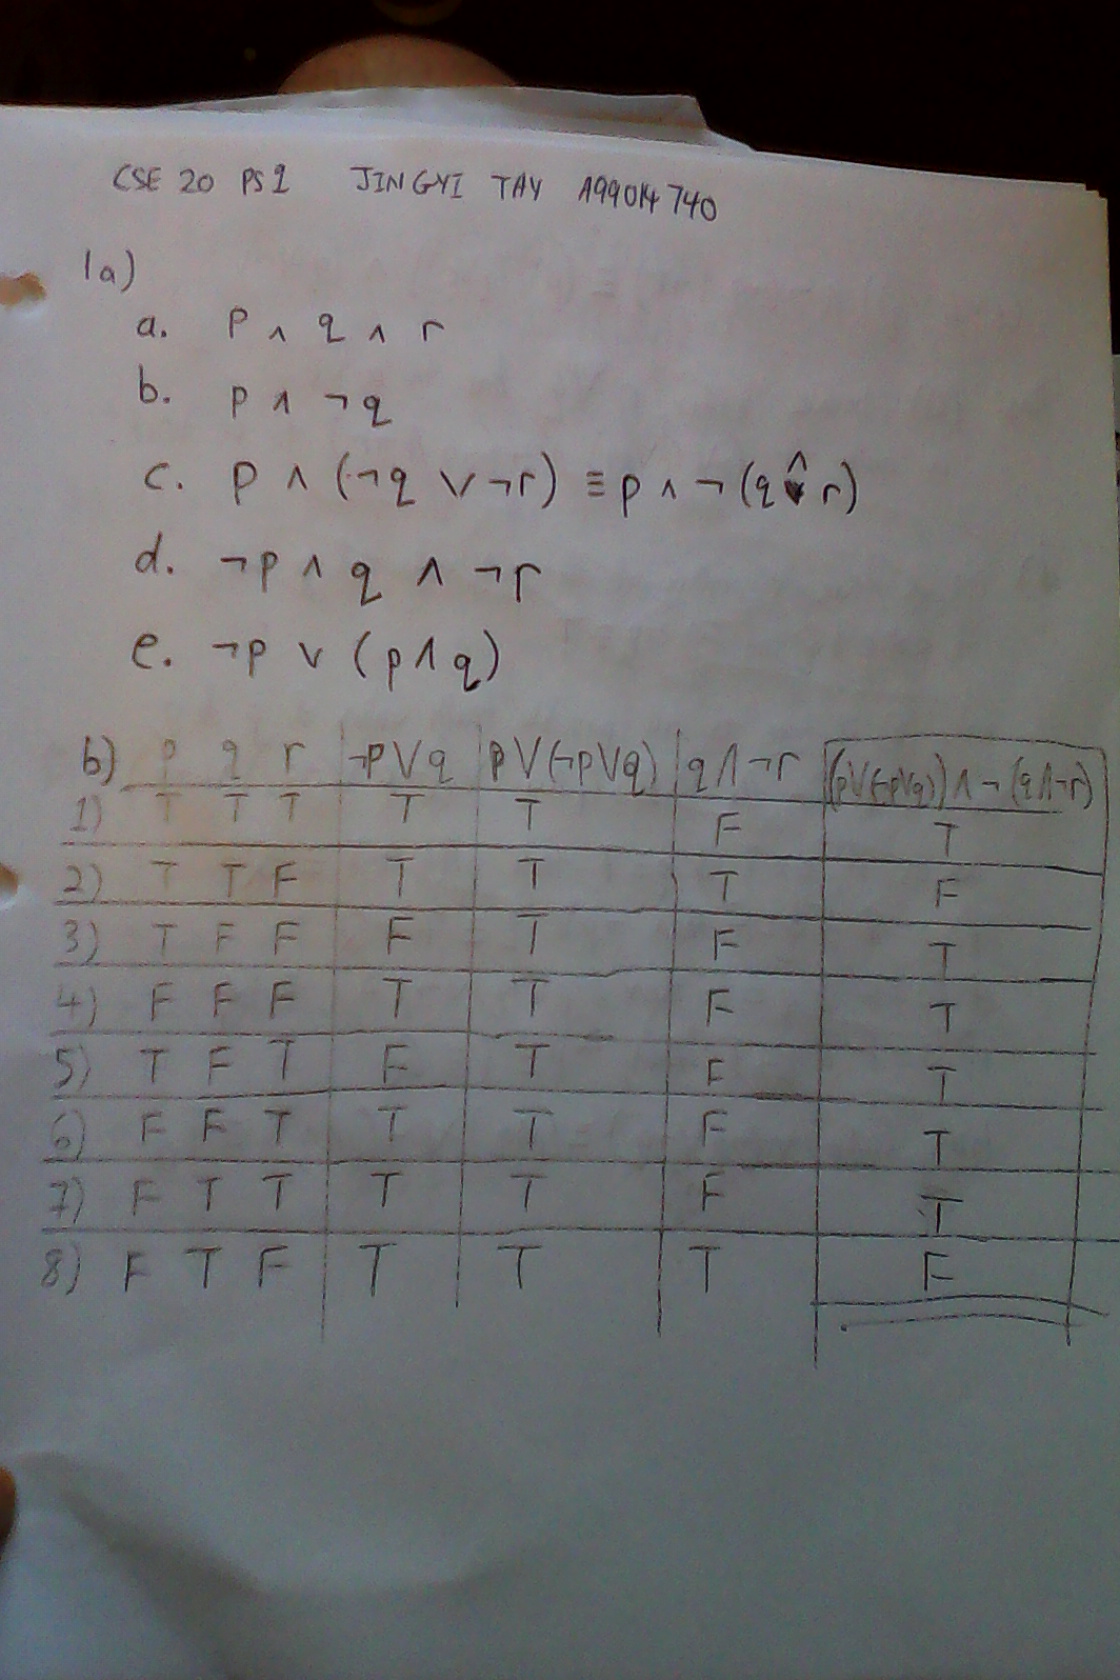 CSE 20 PS1 JINGYI TAY A99014740
1a)
a. p ∧ q ∧ r
b. p ∧ ¬q
c. p ∧ (¬q ∨ ¬r) ≡ p ∧ ¬(q ∧ r)
d. ¬p ∧ q ∧ ¬r
e. ¬p ∨ (p ∧ q)
b) p q r ¬p∨q p∨(¬p∨q) q∧¬r (p∨(¬p∨q))∧¬(q∧¬r)
1) T T T T T F T
2) T T F T T T F
3) T F F F T F T
4) F F F T T F T
5) T F T F T F T
6) F F T T T F T
7) F T T T T F T
8) F T F T T T F